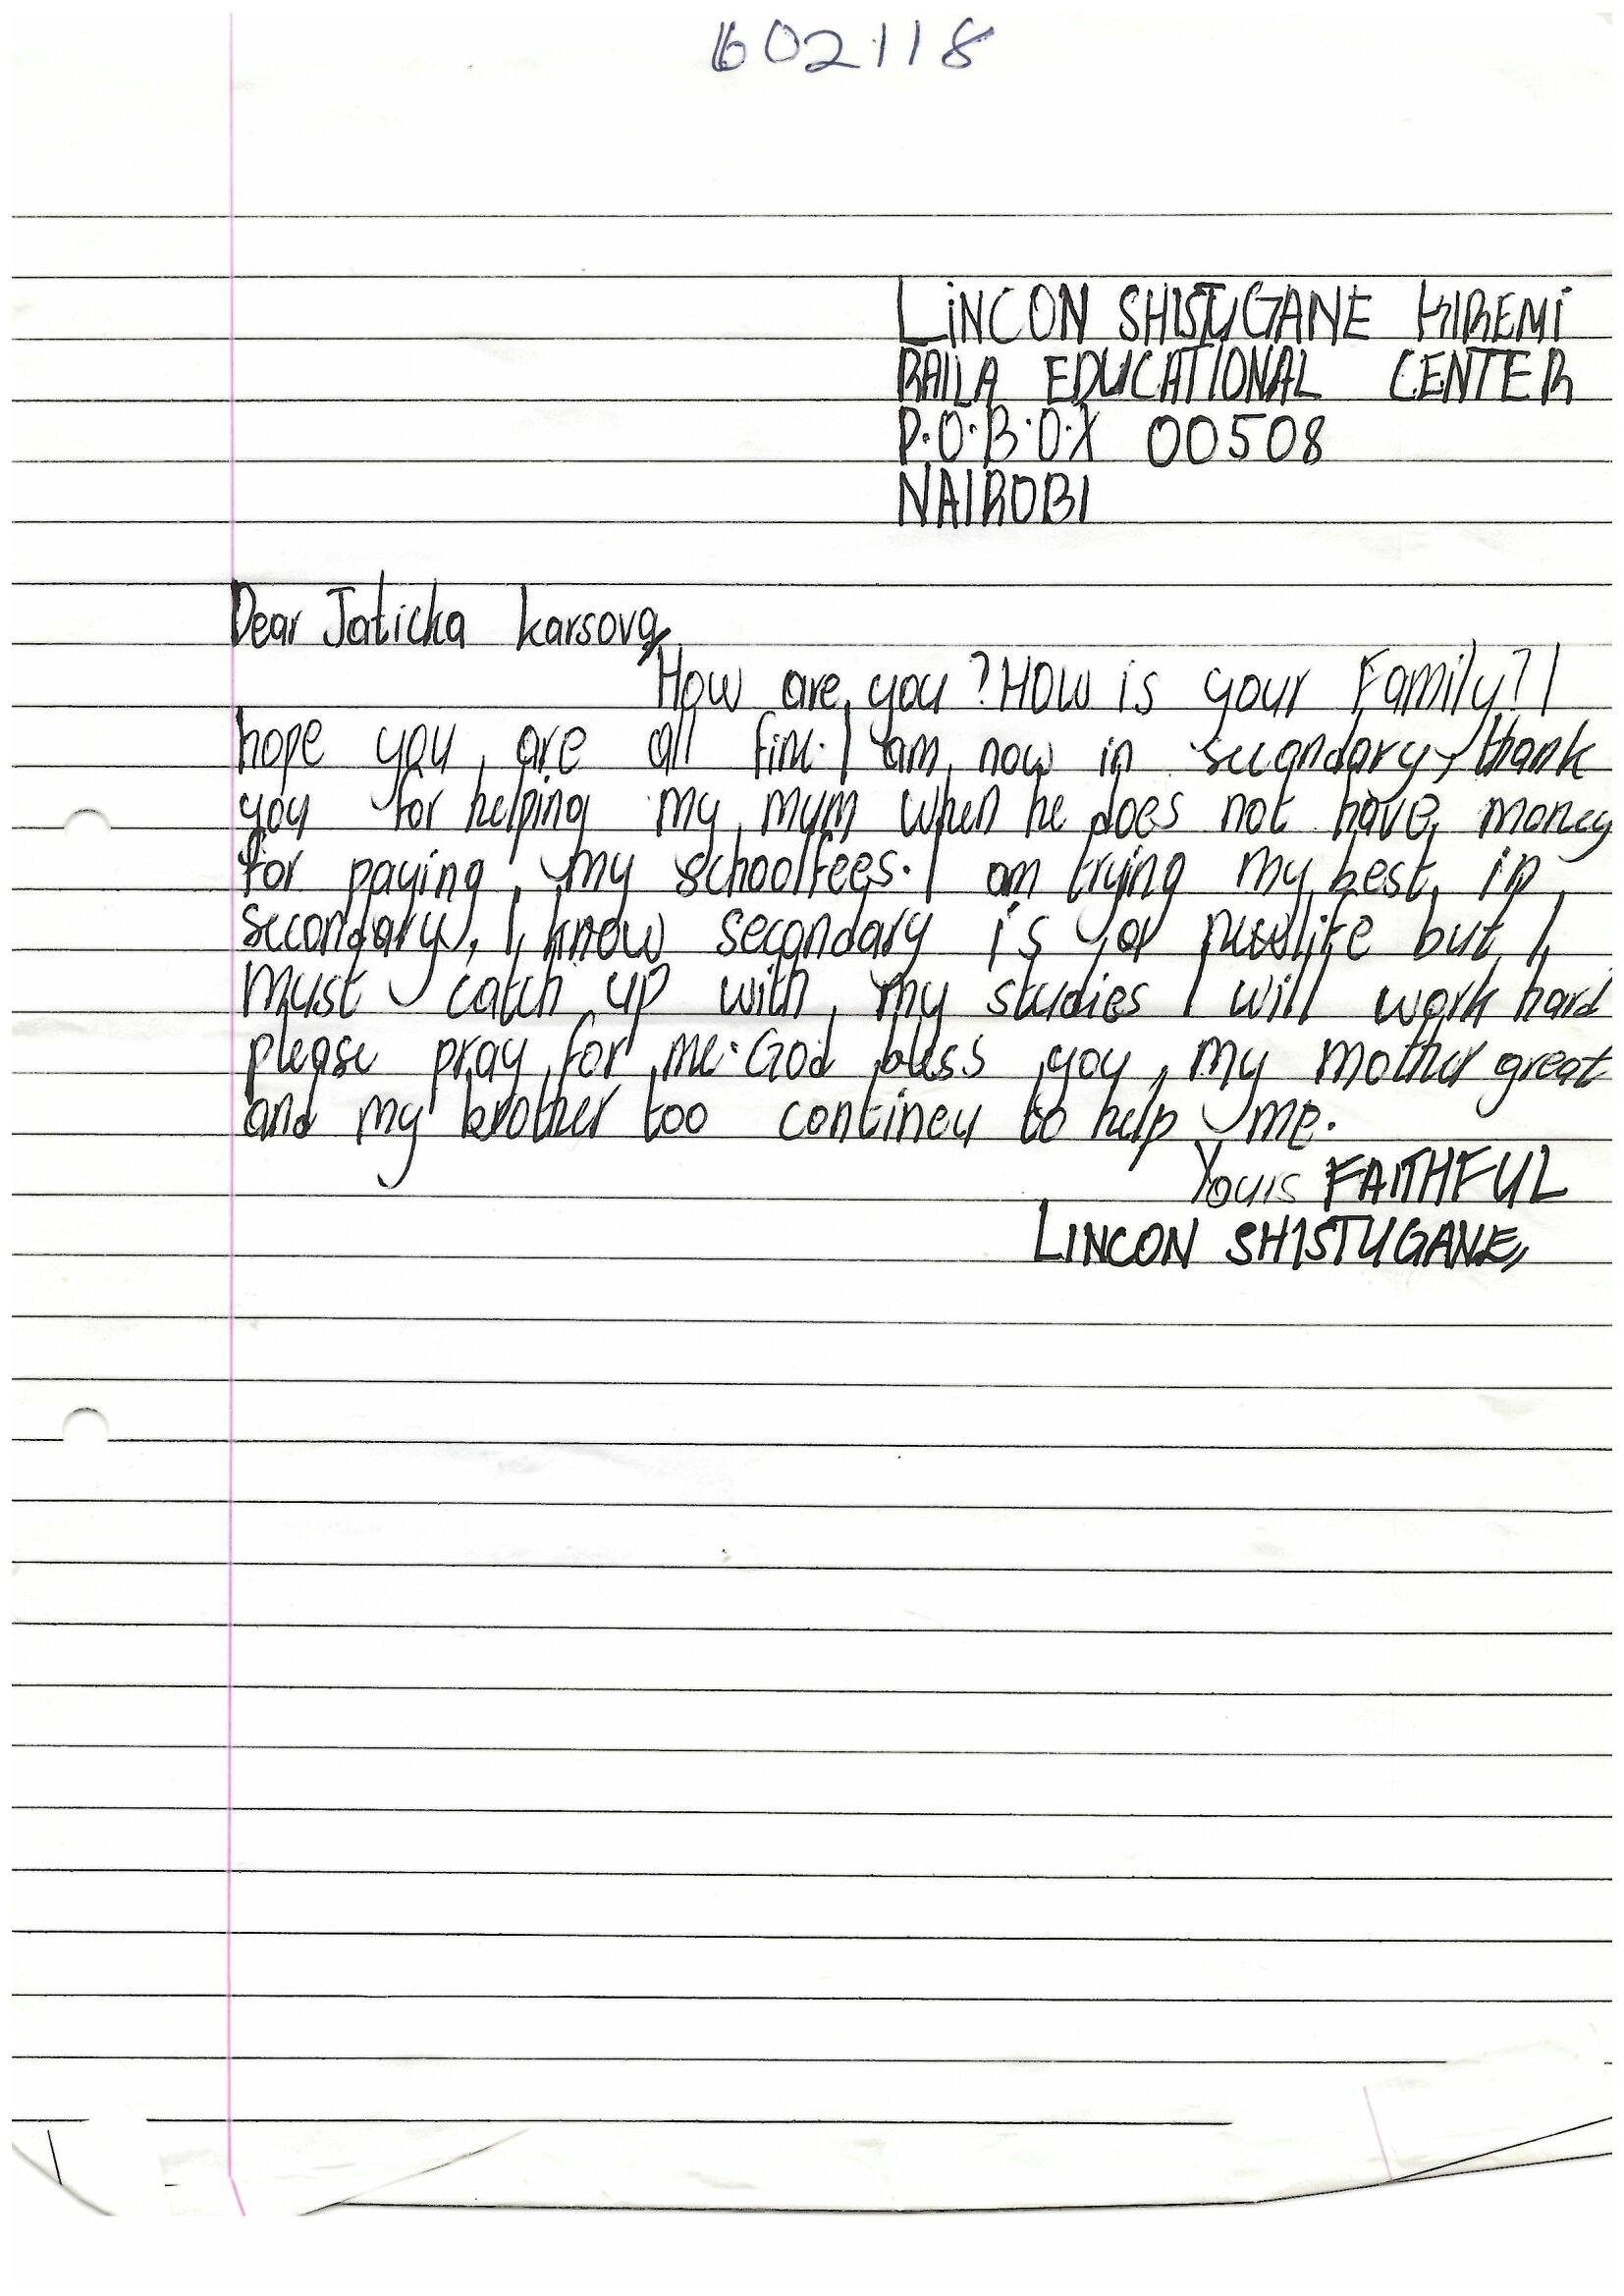 602118
LINCON SHISTUGANE KIREMI
RAILA EDUCATIONAL CENTER
P.O.B.O.X 00508
NAIROBI
Dear Jaticka karsova,
How are you? HOW is your Family? I
hope you are all fine. I am now in secondary, thank
you for helping my mum when he does not have money
for paying my schoolfees. I am trying my best in
secondary, I know secondary is or newlife but I
must catch up with my studies I will work hard
please pray for me. God bless you, my mother great
and my brother too contineu to help me.
Yours FAITHFUL
LINCON SHISTUGANE,